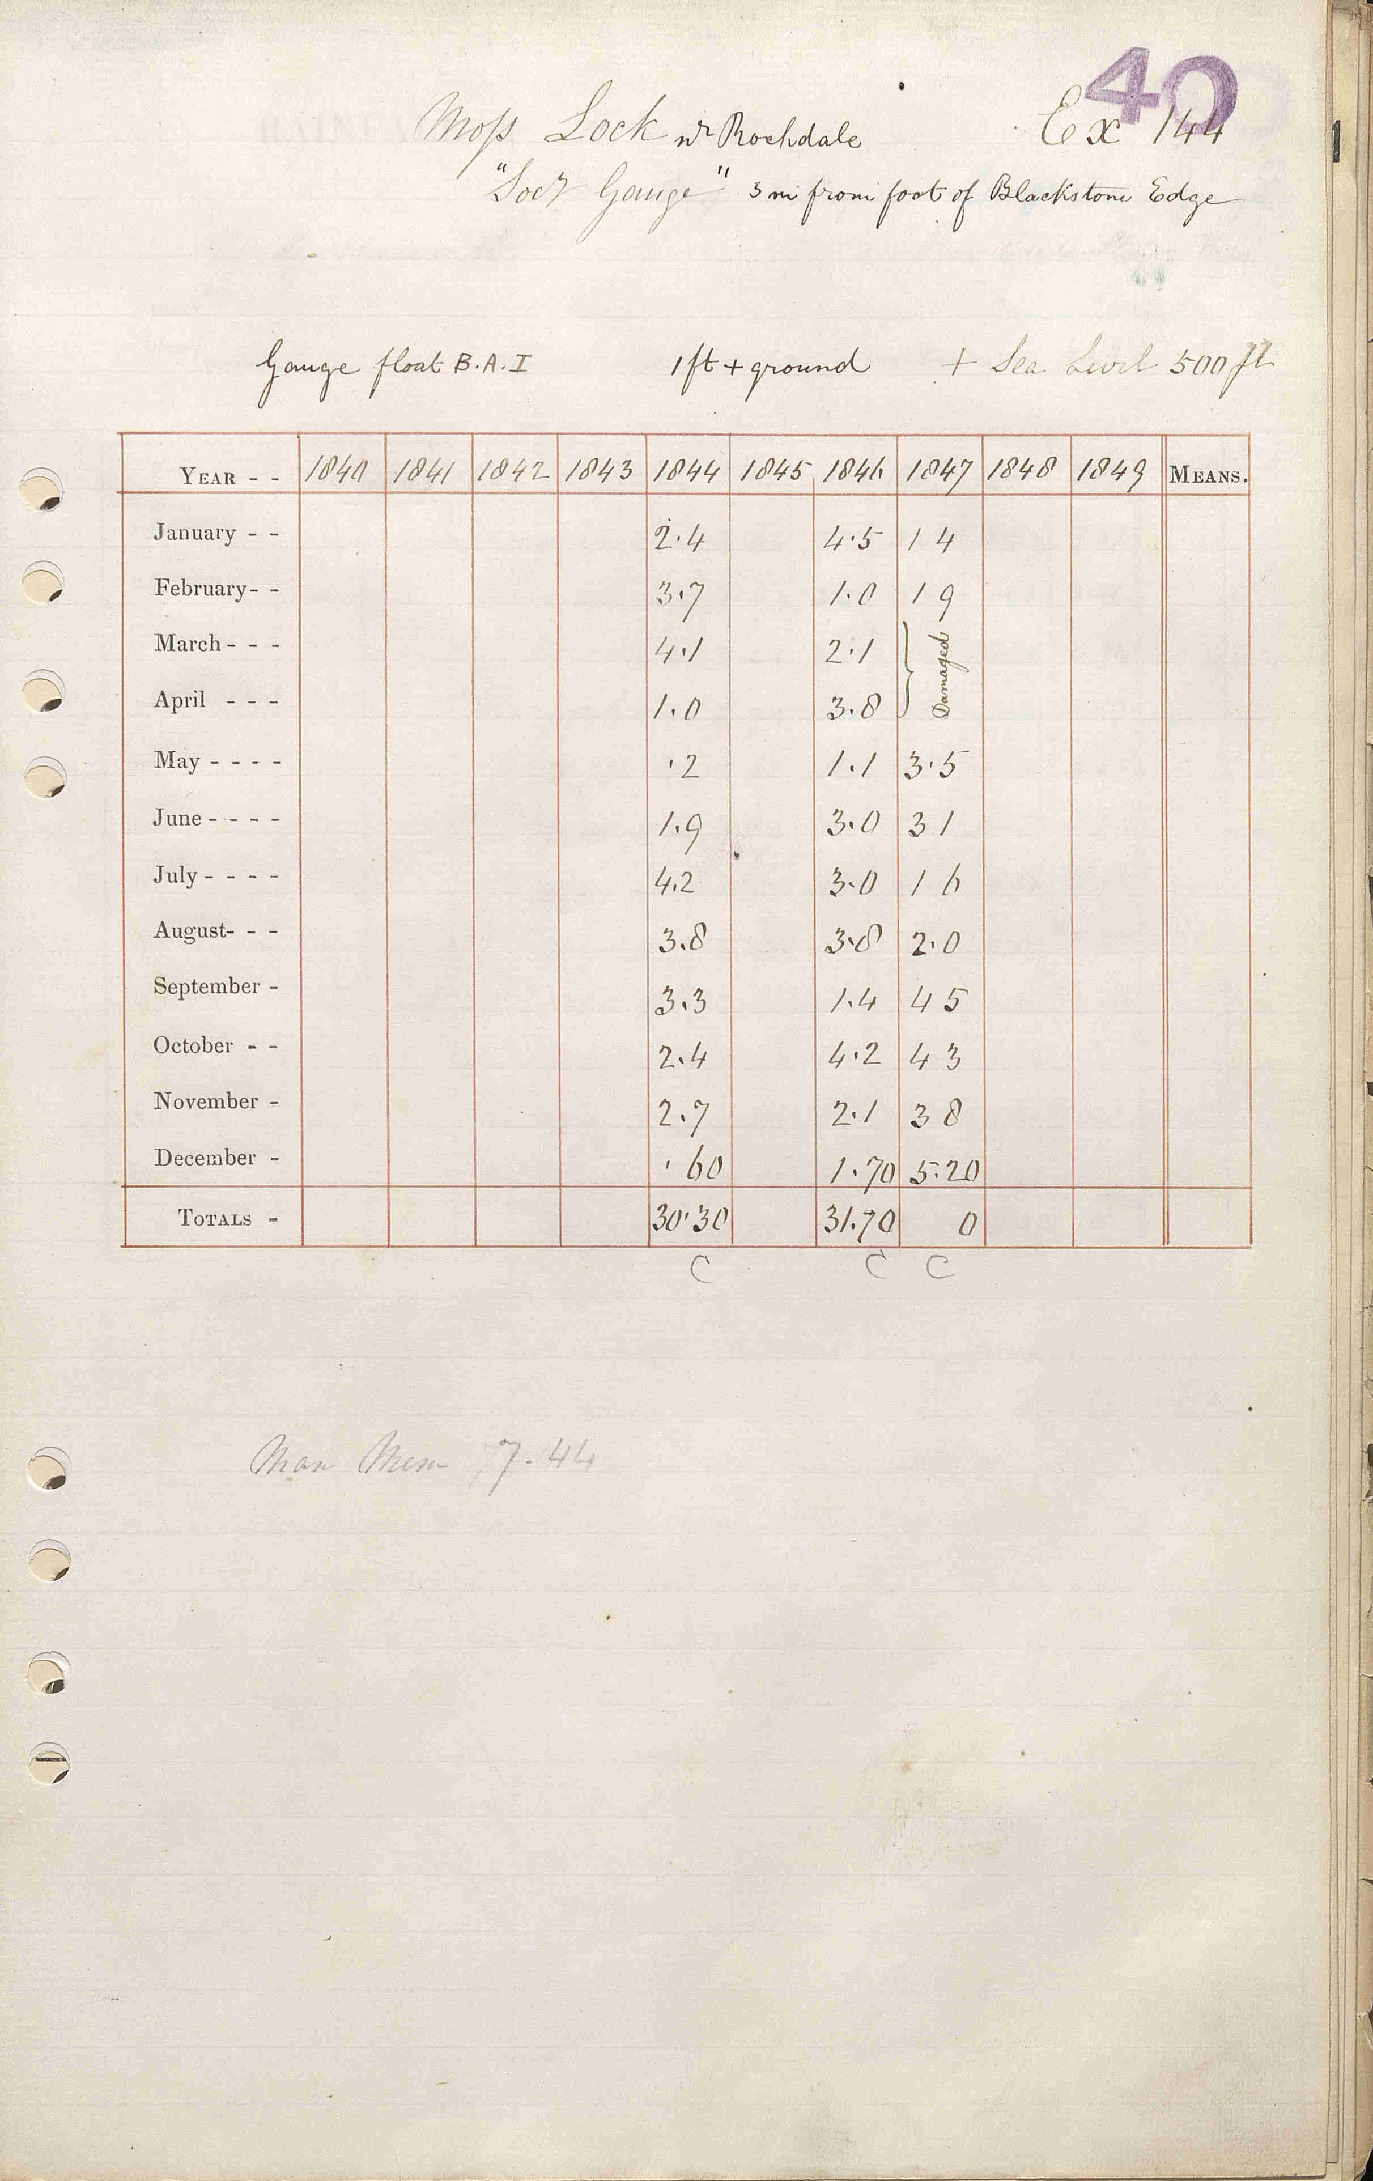 40
Moss Lock nr Rochdale Ex 144
"Socy Gauge" 3 m from foot of Blackstone Edge
Gauge float B.A.I 1 ft + ground + Sea Level 500 ft
YEAR - - 1840 1841 1842 1843 1844 1845 1846 1847 1848 1849 MEANS.
January - - 2.4 4.5 1 4
February - - 3.7 1.0 1 9
March - - - 4.1 2.1 } Damaged
April - - - 1.0 3.8
May - - - - .2 1.1 3.5
June - - - - 1.9 3.0 3 1
July - - - - 4.2 3.0 1 6
August - - - 3.8 3.8 2.0
September - 3.3 1.4 4 5
October - - 2.4 4.2 4 3
November - 2.7 2.1 3 8
December - .60 1.70 5.20
TOTALS - 30.30 31.70 0
C C C
Man Mem 7.44